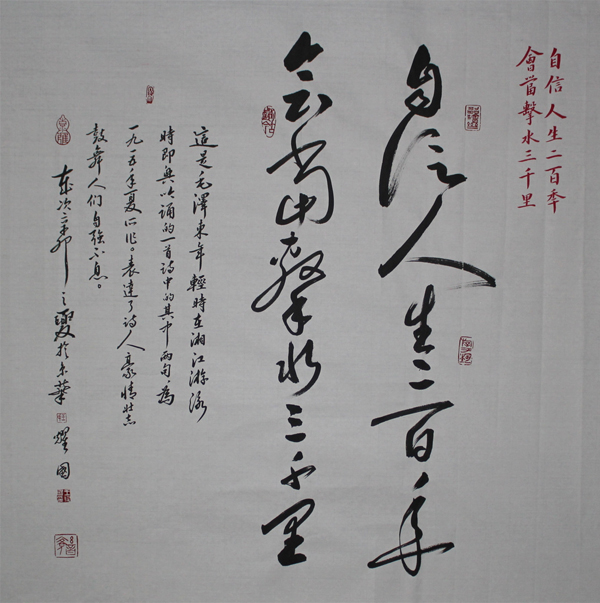 自信人生二百年
會當擊水三千里
自信人生二百年
会當擊水三千里
這是毛澤東年輕時在湘江游泳
時即興吟誦的一首詩中的其中两句，為
一九一五年夏所作。表達了詩人豪情壮志
鼓舞人们自强不息。
歲次辛卯之夏於京華 耀國